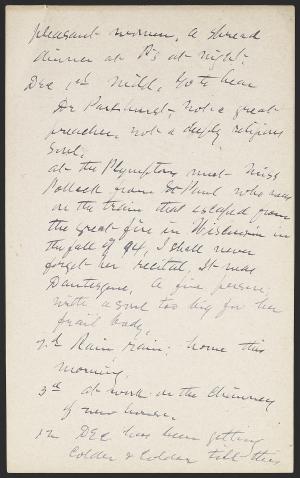 pleasant women, a spread
dinner at B's at night.
Dec 1st Mild, go to hear
Dr Parkhurst, not a great
preacher, not a deeply religious
soul.
at the Plymptons met Miss
Pollock from St Paul who was
on the train that escaped from
the great fire in Wisconsin in
the fall of 94, I shall never
forget her recital, It was
Dantesque, A fine person
with a soul too big for her
frail body,
2d Rain, rain; home this
morning.
3d at work on the chimney
of new house.
12 Dec has been getting
colder & colder till this